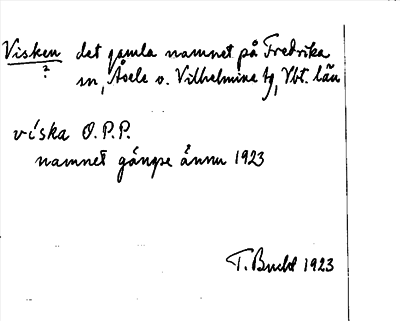 Visken det gamla namnet på Fredrika
? sn, Åsele o. Vilhelmina tg, Vbt. län
víska O.P.P.
namnet gängse ännu 1923
T. Bucht 1923